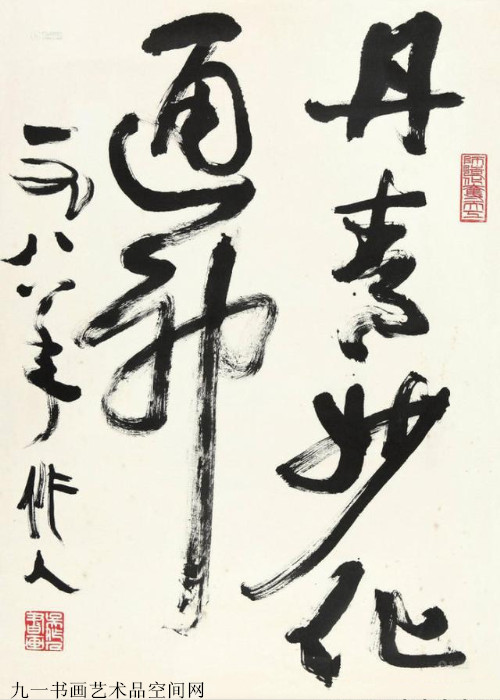 丹青妙化
通神
一九八八年 作人
九一书画艺术品空间网